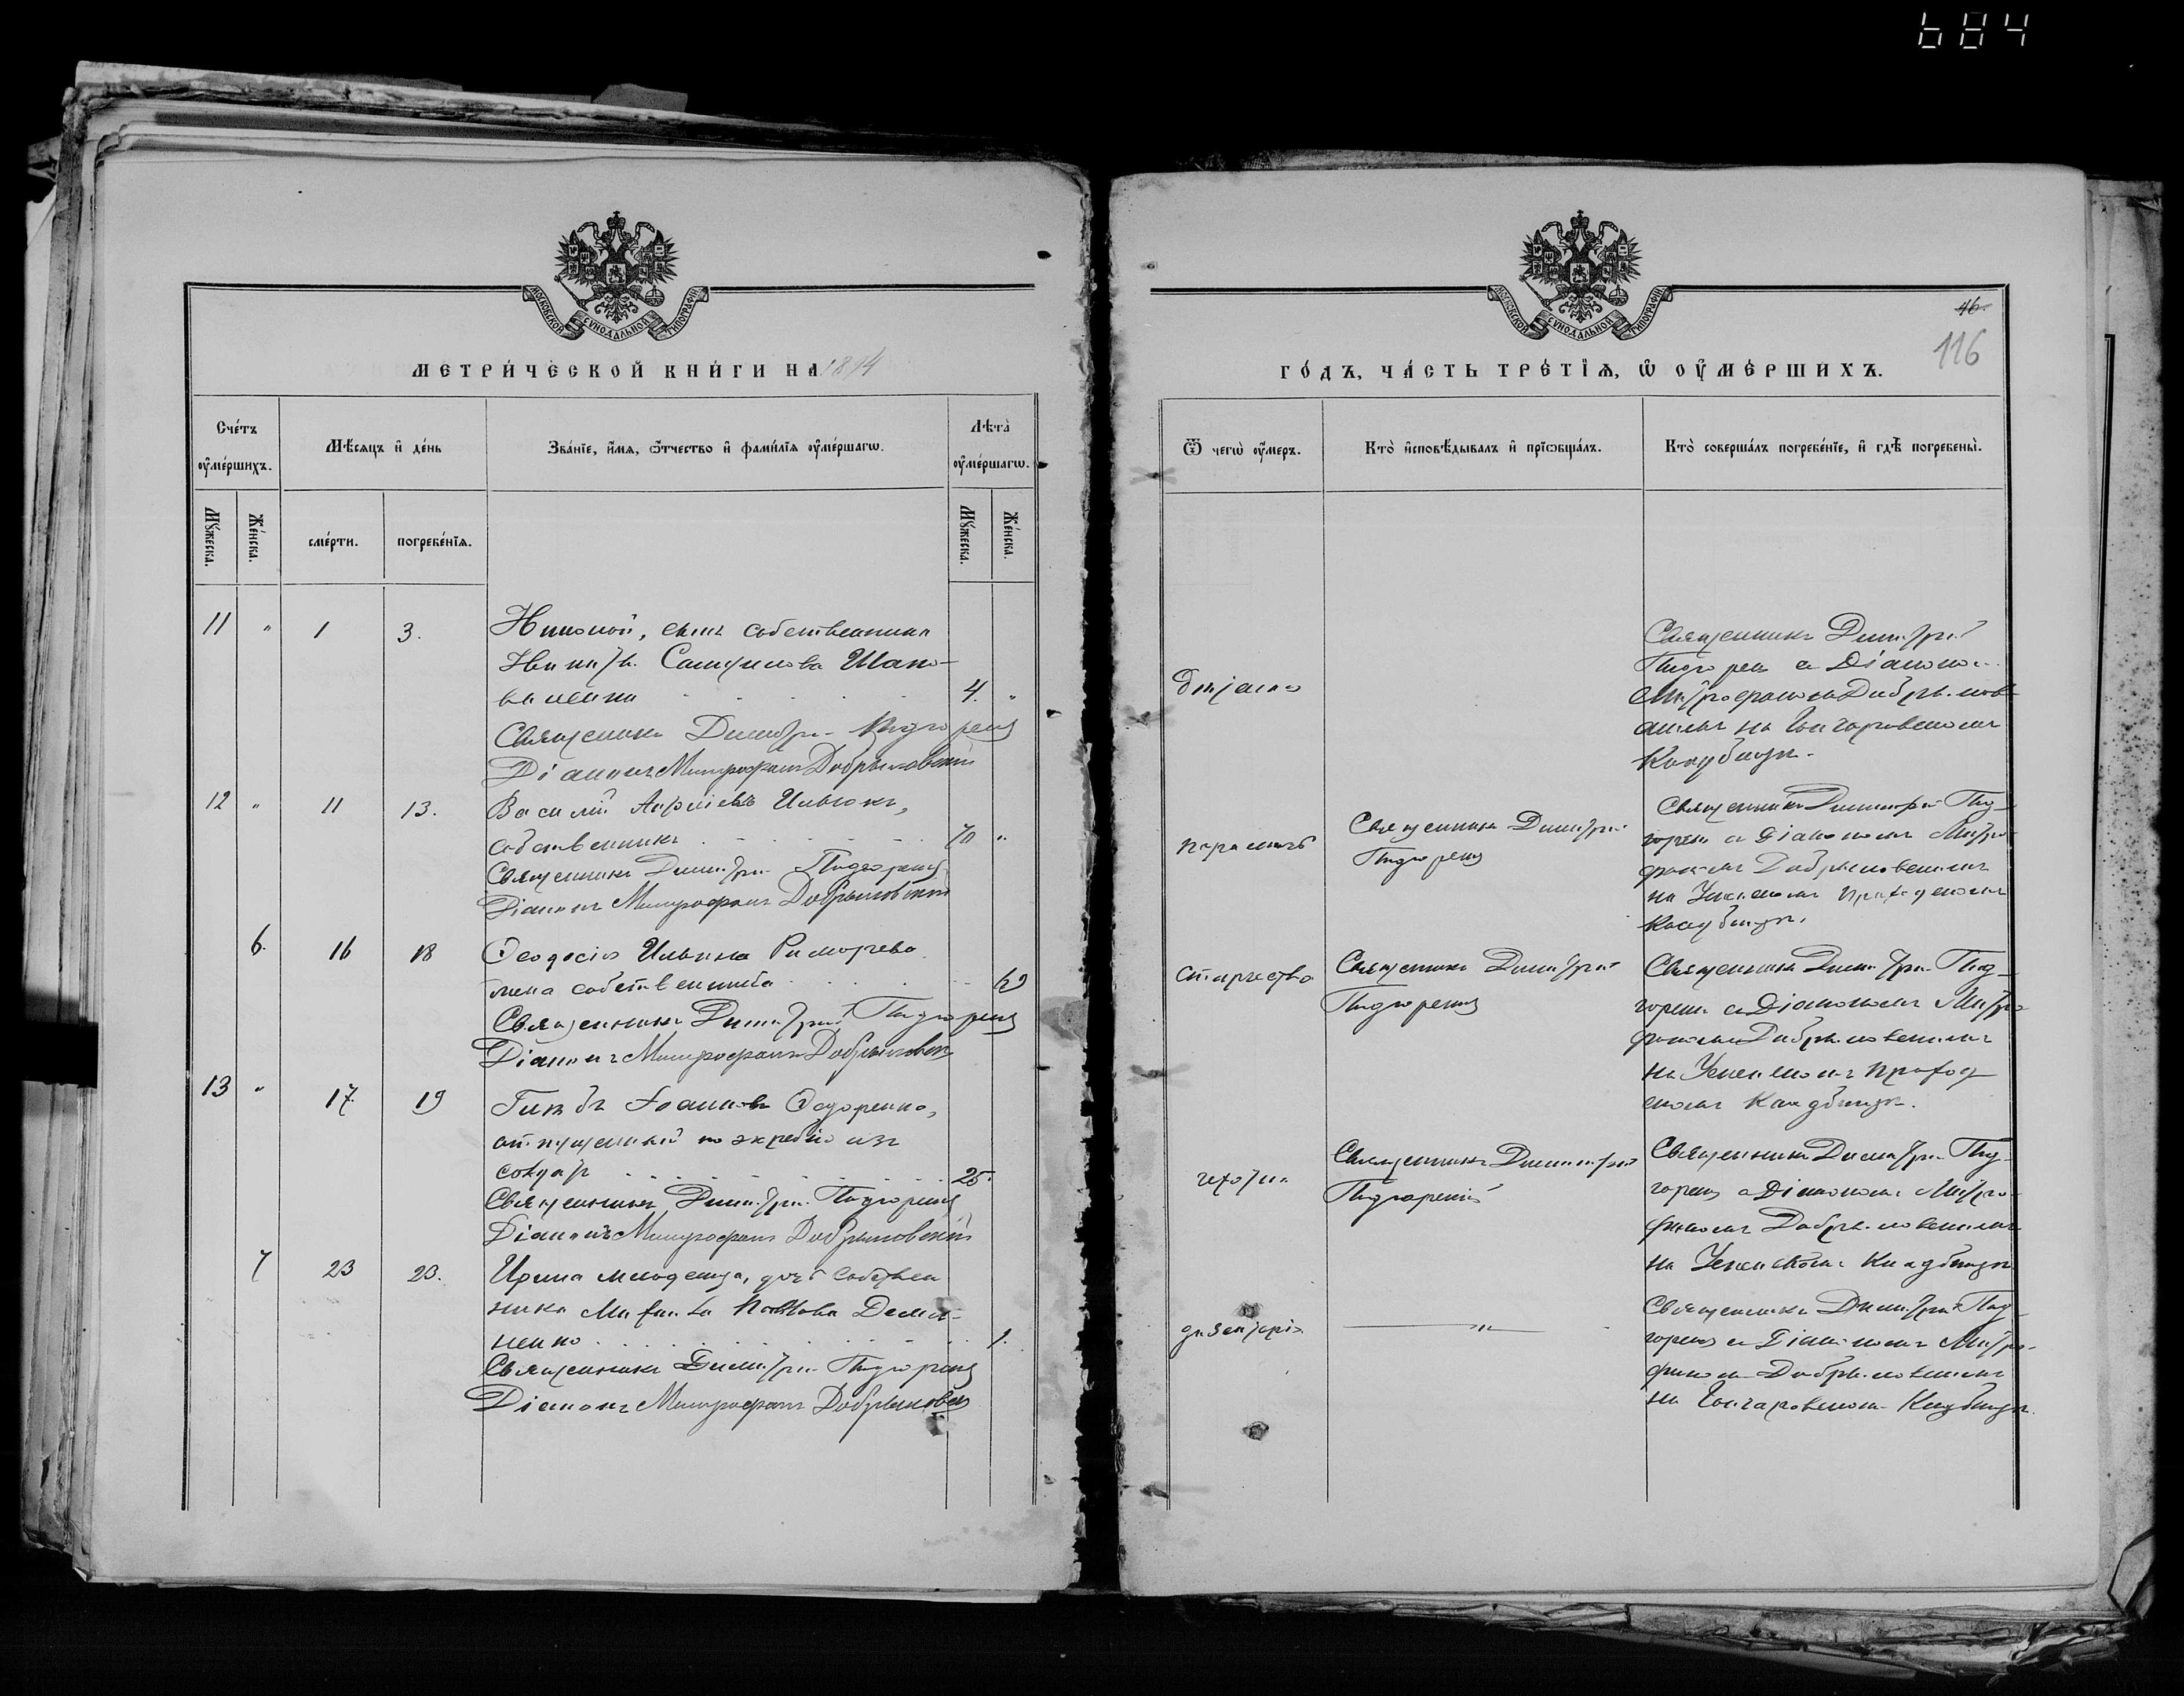 684
МОСКОВСКОЙ СУНОДАЛЬНОЙ ТИПОГРАФІИ
МЕТРИ́ЧЕСКОЙ КНИ́ГИ НА 18
Сче́тъ ᲂу҆ме́ршихъ.
Мѣ́сяцъ и҆ де́нь
Зва́нїе, и҆́мѧ, ѻ҆́тчество и҆ фами́лїѧ ᲂу҆ме́ршагѡ.
Лѣ́та ᲂу҆ме́ршагѡ.
Мꙋ́жеска.
Же́нска.
сме́рти.
погребе́нїѧ.
Мꙋ́жеска.
Же́нска.
11 " 1 3. Николай, сынъ собственника
Никиты Шапо-
4. "
Священникъ Димитрій Пидгорецъ
Діаконъ Митрофанъ Добрыловскій
12 " 11 13. Василій Ильюкъ,
собственникъ 70 "
Священникъ Димитрій Пидгорецъ
Діаконъ Митрофанъ Добрыловскій
6. 16 18 Ѳеодосія Ильина
жена собственника
Священникъ Димитрій Пидгорецъ
Діаконъ Митрофанъ Добрыловскій
13 " 17. 19 Глѣбъ Іоанновъ Ѳедоренко,
отпущенный по жребію изъ
солдатъ 25.
Священникъ Димитрій Пидгорецъ
Діаконъ Митрофанъ Добрыловскій
7 23 23. Ирина младенецъ, дочь собствен
ника Павлова Деми-
ненко 1.
Священникъ Димитрій Пидгорецъ
Діаконъ Митрофанъ Добрыловск
МОСКОВСКОЙ СУНОДАЛЬНОЙ ТИПОГРАФІИ
46.
116
ГО́ДЪ, ЧА́СТЬ ТРЕ́ТЇѦ, Ѡ҆ ОУ҆МЕ́РШИХЪ.
Ѿ чегѡ̀ ᲂу҆́меръ.
Кто̀ и҆сповѣ́дывалъ и҆ прїѡбща́лъ.
Кто̀ соверша́лъ погребе́нїе, и҆ гдѣ̀ погребены̀.
Священникъ Димитрій
Пидгорецъ съ Діакономъ
Митрофаномъ Добрылов-
скимъ на Гончаровскомъ
Кладбищѣ.
параличъ
Священникъ Димитрій
Пидгорецъ
Священникъ Димитрій Пид-
горецъ съ Діакономъ Митро-
фаномъ Добрыловскимъ
на Успенскомъ приходскомъ
Кладбищѣ.
старчества
Священникъ Димитрій
Пидгорецъ
Священникъ Димитрій Пид-
горецъ съ Діакономъ Митро-
фаномъ Добрыловскимъ
на Успенскомъ приход
скомъ Кладбищѣ.
чахотка
Священникъ Димитрій
Пидгорецъ
Священникъ Димитрій Пид-
горецъ съ Діакономъ Митро-
фаномъ Добрыловскимъ
на Успенскомъ Кладбищѣ
дизентерія
— " —
Священникъ Димитрій Пид-
горецъ съ Діакономъ Митро-
фаномъ Добрыловскимъ
на Гончаровскомъ Кладбищѣ.